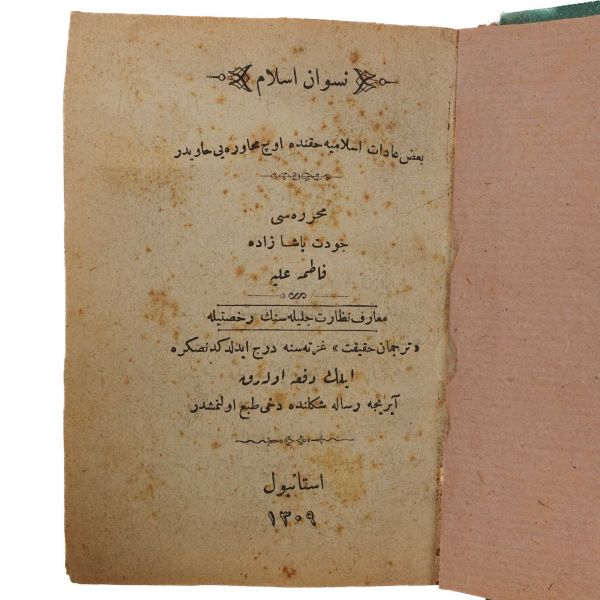 نسوان اسلام
بعض عادات اسلامیه حقنده اوچ محاوره‌یی حاویدر
محرره‌سی
جودت پاشا زاده
فاطمه علیه
معارف نظارت جلیله‌سنك رخصتیله
«ترجمان حقیقت» غزته‌سنه درج ایدلدكدنصكره
ایلك دفعه اوله‌رق
آیریجه رساله شكلنده دخی طبع اولنمشدر
استانبول
١٣٠٩